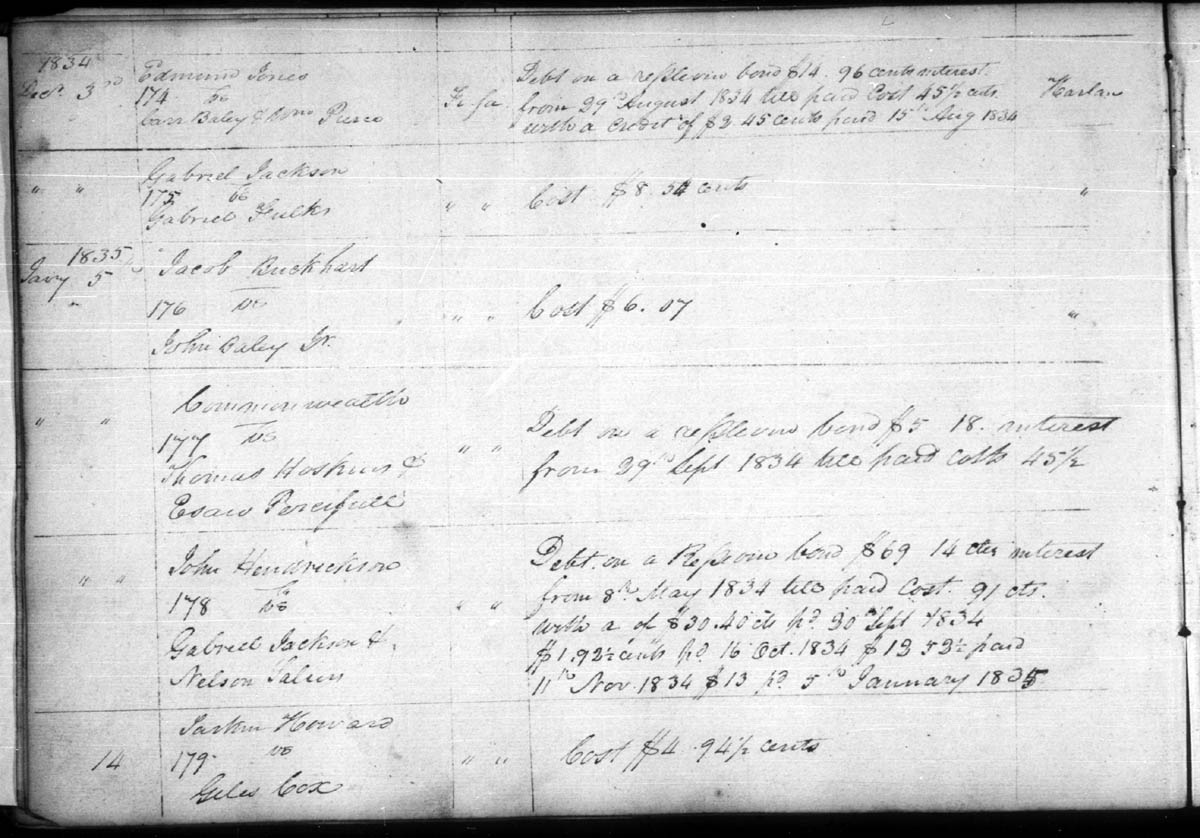 1834
Decr. 3rd Edmund Jones Debt on a replevin bond $14. 96 cents interest
174 vs Fi fa from 29th August 1834 till paid Cost 45½ cts Harlan
Carr Baley & Pierce with a credit of $2.45 cents paid 15th Aug 1834
Gabriel Jackson
" " 175 vs " " Cost $8. 54 cents "
Gabriel Fulks
1835
Jany 5th Jacob Buckhart
" 176 vs " " Cost $6. 07 "
John Baley Jr.
Commonwealth
" " 177 vs " " Debt on a replevin bond $5 18. interest
Thomas Hoskins & from 29th Sept 1834 till paid costs 45½
Esaw Percifull
John Hendrickson Debt. on a Replevin bond $69 14 cts interest
" " 178 vs " " from 8th May 1834 till paid Cost. 91 cts.
Gabriel Jackson & with a of $30.40 cts pd. 30th Sept 1834
Nelson $1.92½ cents pd. 16 Oct. 1834 $12 52½ paid
11th Nov. 1834 $13 pd. 5th January 1835
Howard
14 179 vs " " Cost $4. 94½ cents
Giles Cox